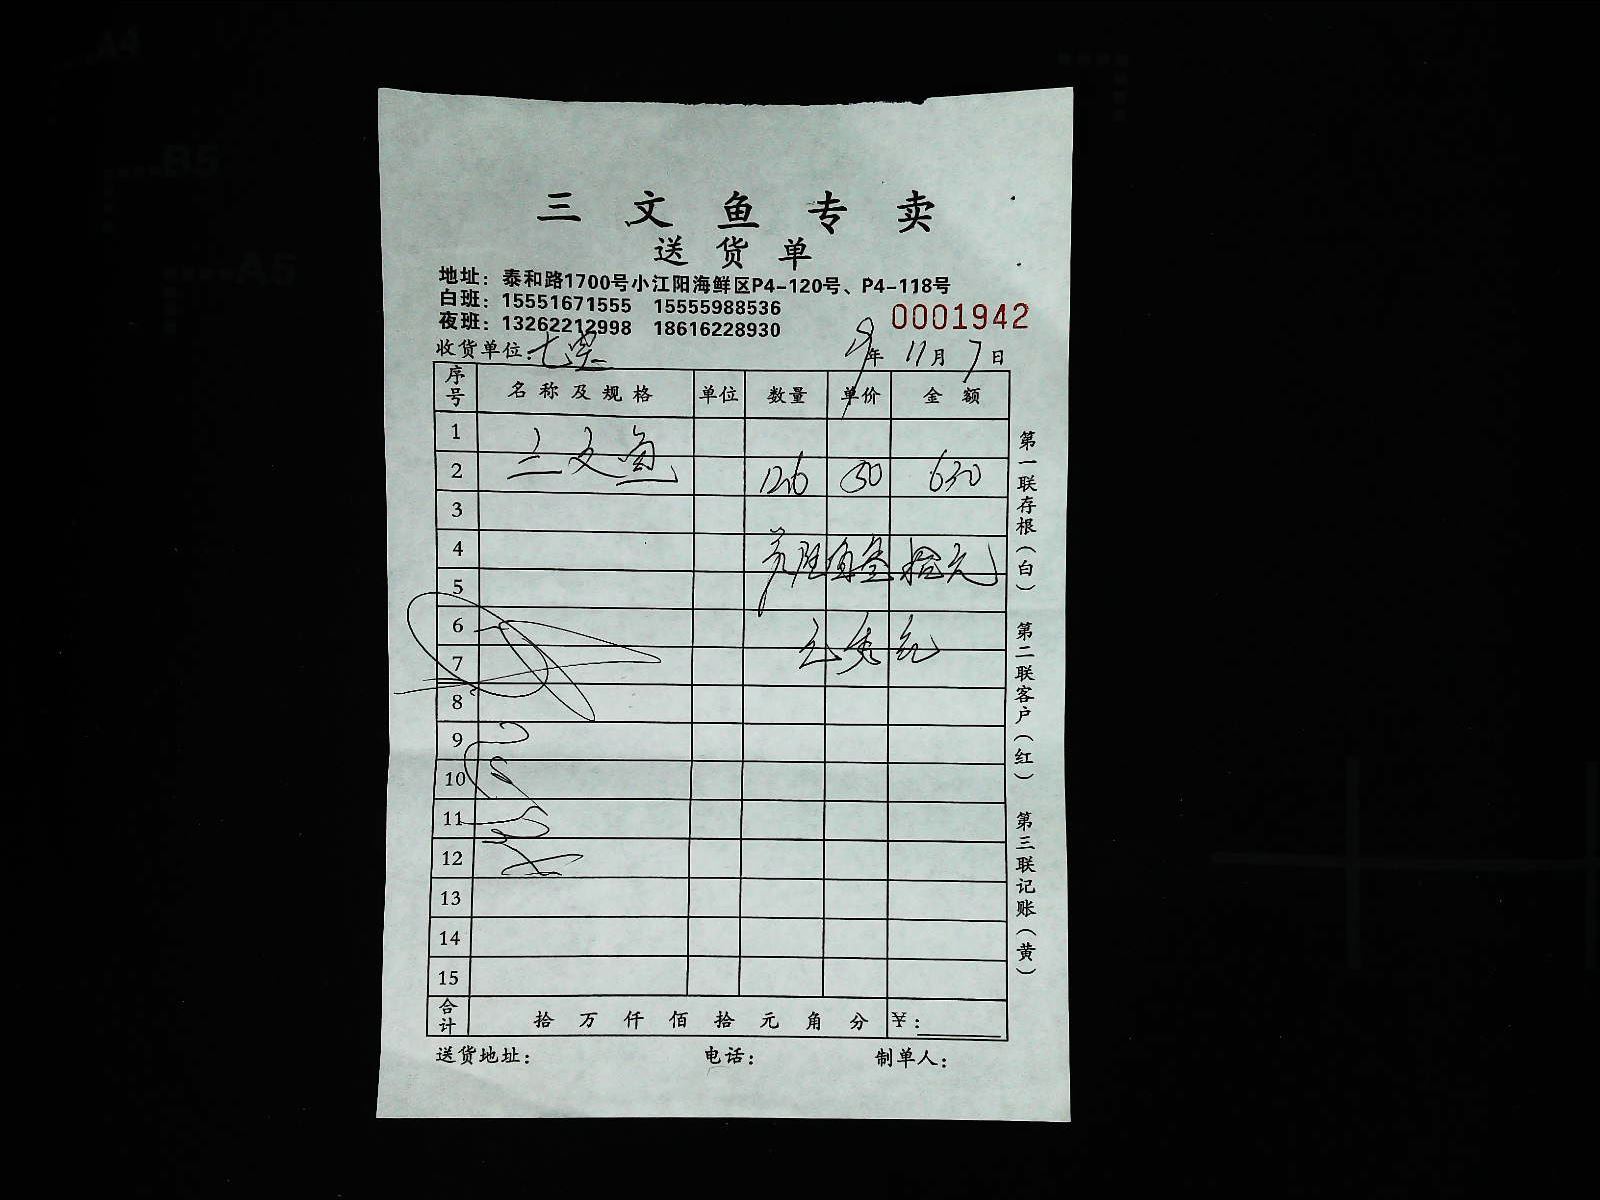 三文鱼专卖
送货单
地址：泰和路1700号小江阳海鲜区P4-120号、P4-118号
白班：15551671555 15555988536
夜班：13262212998 18616228930
0001942
收货单位： 年 11月 7日
序号 名称及规格 单位 数量 单价 金额
1
2 三文鱼 12.6 50 630
3
4
5
6
7
8
9
10
11
12
13
14
15
合计 拾 万 仟 佰 拾 元 角 分 ¥：
送货地址： 电话： 制单人：
第一联存根（白）
第二联客户（红）
第三联记账（黄）
A4
B5
A5